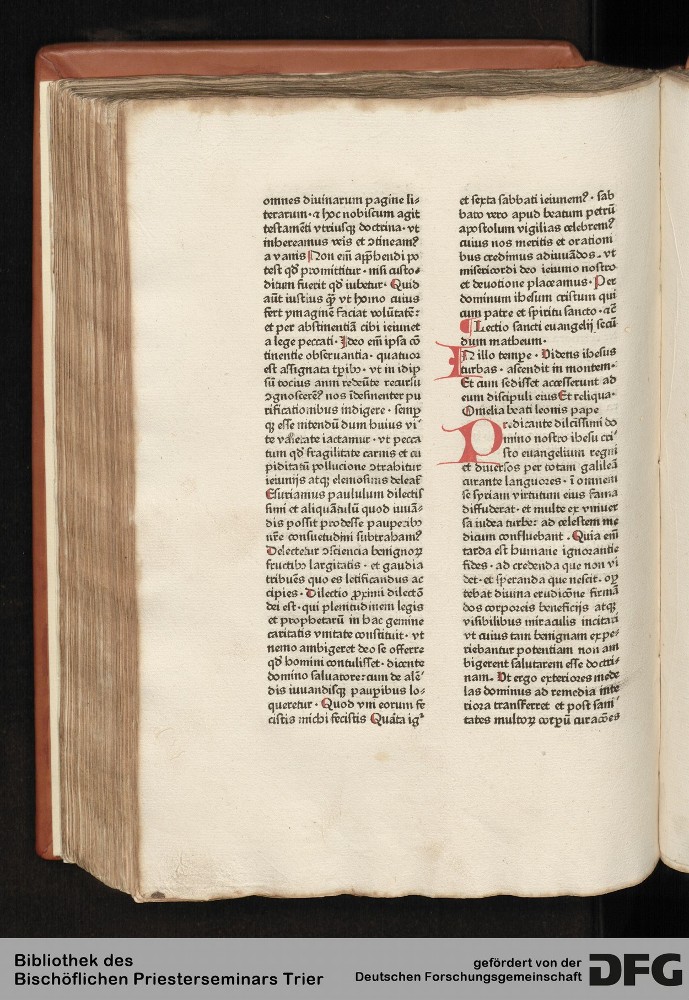 omnes diuinarum pagine li⸗
terarum · ⁊ hoc nobiscum agit
testamẽti vtriusqꝫ doctrina · vt
inhereamus veris et ꝯtineamꝰ
a vanis Non em̄ app̃hendi po
test qd̕ promittitur · nisi custo⸗
ditum fuerit qd̕ iubetur · Quid
aũt iustius q̃ȝ vt homo cuius
fert ymaginẽ faciat volũtatẽ:
et per abstinentiã cibi ieiunet
a lege peccati · Ideo em̄ ipsa cõ
tinentie obseruantia · quatuor
est assignata tp̃ibꝫ · vt in idip̃
sũ tocius anni redeũte recursu
ꝯgnosceretꝰ nos ĩdesinenter pu
rificationibus indigere · semp̱
qꝫ esse nitendũ dum huius vi⸗
te varietate iactamur · vt pecca
tum qd̕ fragilitate carnis et cu
piditatũ pollucione ꝯtrahitur
ieiunijs atqꝫ elemosinis deleat̕
Esuriamus paululum dilectis
simi et aliquãtulũ quod iuuã⸗
dis possit prodesse pauperibꝫ
nr̃e consuetudini subtrahamꝰ
Delectetur ꝯsciencia benignoꝝ
fructibꝫ largitatis · et gaudia
tribuẽs quo es letificandus ac
cipies · Dilectio ꝓximi dilectõ
dei est · qui plenitudinem legis
et prophetarũ in hac gemine
caritatis vnitate constituit · vt
nemo ambigeret deo se offerre
qd̕ homini contulisset · dicente
domino saluatore: cum de alẽ⸗
dis iuuandisqꝫ paup̱ibus lo⸗
queretur · Quod vni eorum fe
cistis michi fecistis Quãta igᵗ
et sexta sabbati ieiunemꝰ · sab
bato vero apud beatum petrũ
apostolum vigilias celebremꝰ
cuius nos meritis et orationi
bus credimus adiuuãdos · vt
misericordi deo ieiunio nostro
et deuotione placeamus · Per
dominum ihesum cristum qui
cum patre et spiritu sancto · ⁊c̃
¶ Lectio sancti euangelij secũ
dum matheum ·
IN illo tempe · Videns ihesus
turbas · ascendit in montem ·
Et cum sedisset accesserunt ad
eum discipuli eius Et reliqua ·
Omelia beati leonis pape
PRedicante dilcĩssimi do
mino nostro ihesu cri⸗
sto euangelium regni
et diuersos per totam galileã
curante languores · ĩ omnem
se syriam virtutum eius fama
diffuderat · et multe ex vniuer
sa iudea turbe: ad celestem me
dicum confluebant · Quia em̄
tarda est humane ignorantie
fides · ad credenda que non vi
det · et speranda que nescit · op̱
tebat diuina erudicõne firmã
dos corporeis beneficijs atqꝫ
visibilibus miraculis incitari
vt cuius tam benignam expe⸗
riebantur potentiam non am
bigerent salutarem esse doctri⸗
nam · Vt ergo exteriores mede
las dominus ad remedia inte
riora transferret et post sani⸗
tates multoꝝ corpũ curacões
Bibliothek des
Bischöflichen Priesterseminars Trier
gefördert von der
Deutschen Forschungsgemeinschaft
DFG